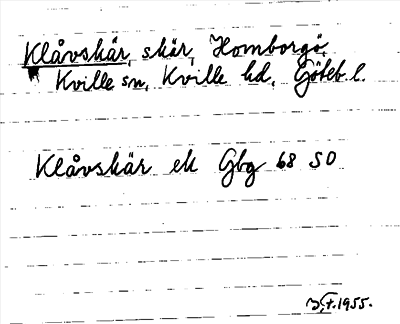 Klåvskär, skär, Homborgö,
Kville sn, Kville hd, Göteb. l.
Klåvskär ek Gbg 68 SO
1955.